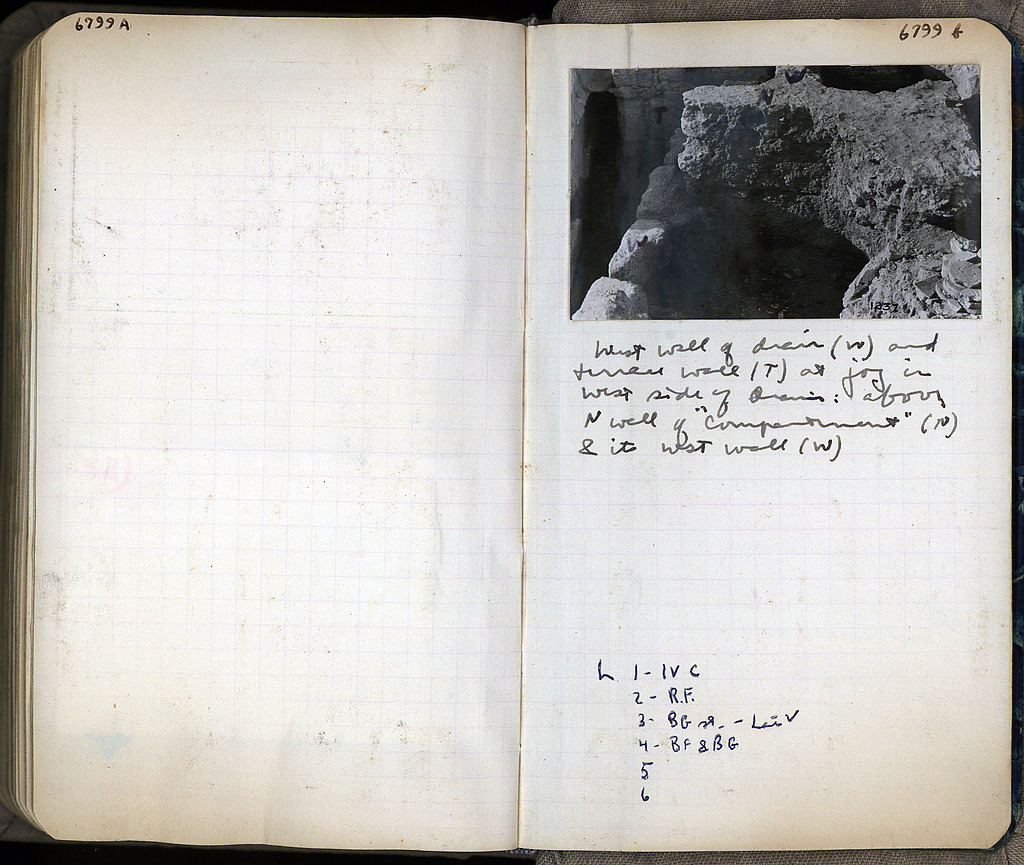 6799 A
6799
1237
West wall of drain (W) and
terrace wall (T) at jog in
west side of drain: above
N wall of "compartment" (N)
& its west wall (W)
L 1 - IV C
2 - R.F.
3 - BG st. - Late V
4 - BF & BG
5
6